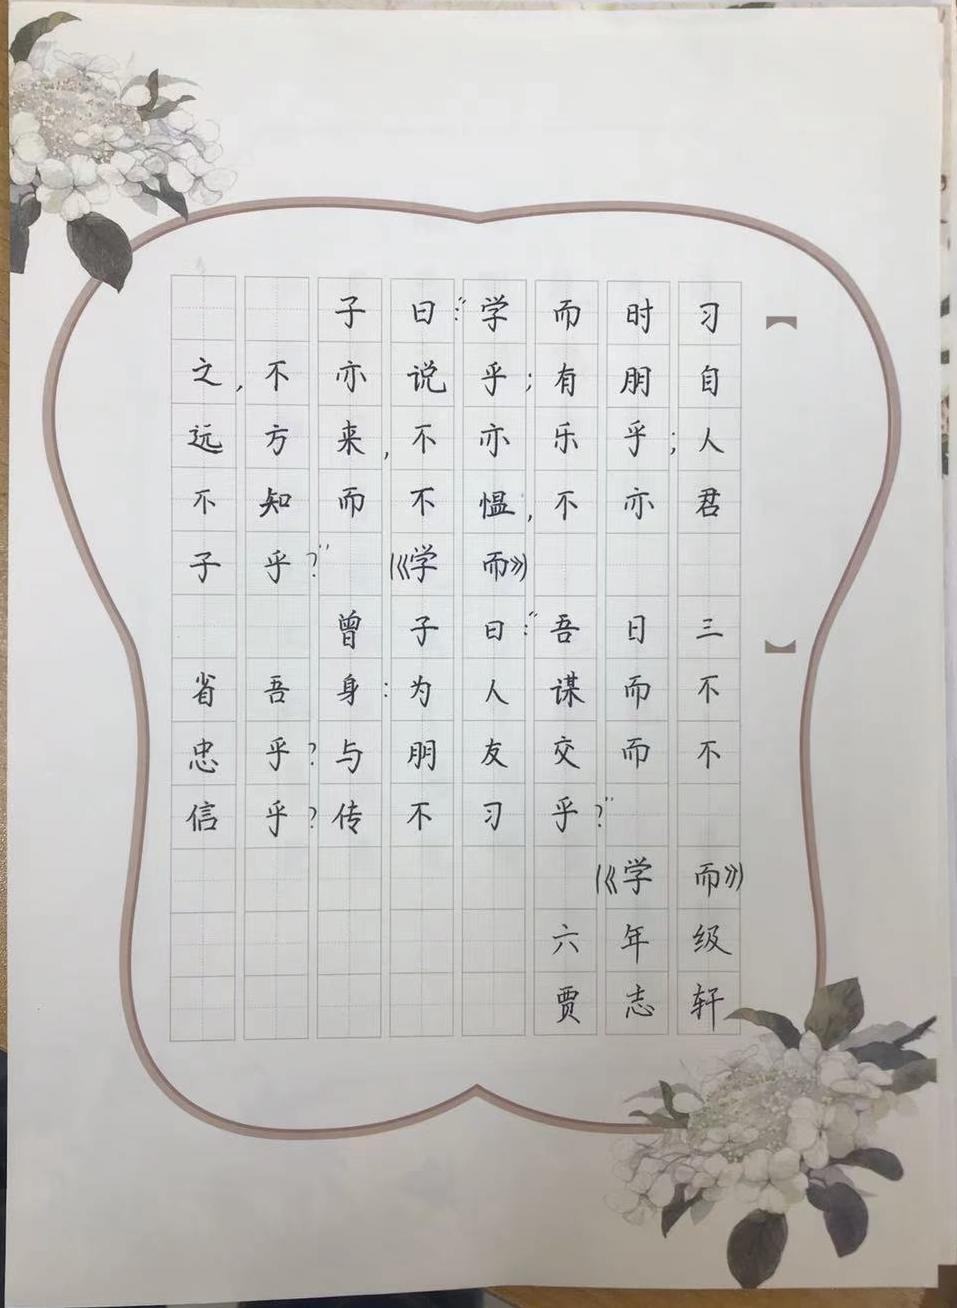 子曰：“学而时习
之，不亦说乎；有朋自
远方来，不亦乐乎；人
不知而不愠，不亦君
子乎？”（《学而》）
曾子曰：“吾日三
省吾身：为人谋而不
忠乎？与朋友交而不
信乎？传不习乎？”
（《学而》）
六年级
贾志轩